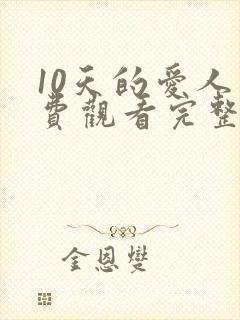 10天的愛人
費觀看完整
金恩燮